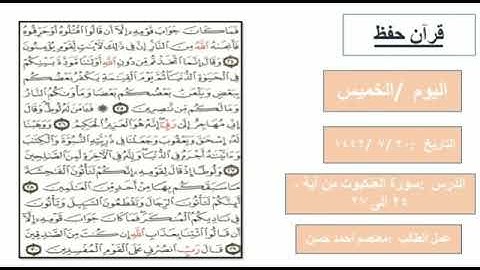 قرآن حفظ
اليوم /الخميس
التاريخ :٢٠ /٧ /١٤٤٢
الدرس :سورة العنكبوت من آية .
٢٤ الى ٢٧
عمل الطالب :معتصم احمد حسن
فَمَا كَانَ جَوَابَ قَوْمِهِ إِلَّا أَن قَالُوا اقْتُلُوهُ أَوْ حَرِّقُوهُ
فَأَنجَىٰهُ اللَّهُ مِنَ النَّارِ إِنَّ فِي ذَٰلِكَ لَآيَٰتٍ لِّقَوْمٍ يُؤْمِنُونَ
٢٤ وَقَالَ إِنَّمَا اتَّخَذْتُم مِّن دُونِ اللَّهِ أَوْثَٰنًا مَّوَدَّةَ بَيْنِكُمْ
فِي الْحَيَوٰةِ الدُّنْيَا ثُمَّ يَوْمَ الْقِيَٰمَةِ يَكْفُرُ بَعْضُكُم
بِبَعْضٍ وَيَلْعَنُ بَعْضُكُم بَعْضًا وَمَأْوَىٰكُمُ النَّارُ
وَمَا لَكُم مِّن نَّٰصِرِينَ ٢٥ فَـَٔامَنَ لَهُ لُوطٌ وَقَالَ
إِنِّي مُهَاجِرٌ إِلَىٰ رَبِّي إِنَّهُ هُوَ الْعَزِيزُ الْحَكِيمُ ٢٦ وَوَهَبْنَا
لَهُ إِسْحَٰقَ وَيَعْقُوبَ وَجَعَلْنَا فِي ذُرِّيَّتِهِ النُّبُوَّةَ وَالْكِتَٰبَ
وَءَاتَيْنَٰهُ أَجْرَهُ فِي الدُّنْيَا وَإِنَّهُ فِي الْآخِرَةِ لَمِنَ الصَّٰلِحِينَ
٢٧ وَلُوطًا إِذْ قَالَ لِقَوْمِهِ إِنَّكُمْ لَتَأْتُونَ الْفَٰحِشَةَ
مَا سَبَقَكُم بِهَا مِنْ أَحَدٍ مِّنَ الْعَٰلَمِينَ ٢٨
أَئِنَّكُمْ لَتَأْتُونَ الرِّجَالَ وَتَقْطَعُونَ السَّبِيلَ وَتَأْتُونَ
فِي نَادِيكُمُ الْمُنكَرَ فَمَا كَانَ جَوَابَ قَوْمِهِ إِلَّا أَن
قَالُوا ائْتِنَا بِعَذَابِ اللَّهِ إِن كُنتَ مِنَ الصَّٰدِقِينَ
٢٩ قَالَ رَبِّ انصُرْنِي عَلَى الْقَوْمِ الْمُفْسِدِينَ ٣٠